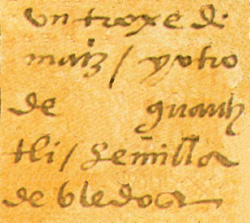 un troxe di
maiz / y otro
de guauh
tli / semilla
de bledos